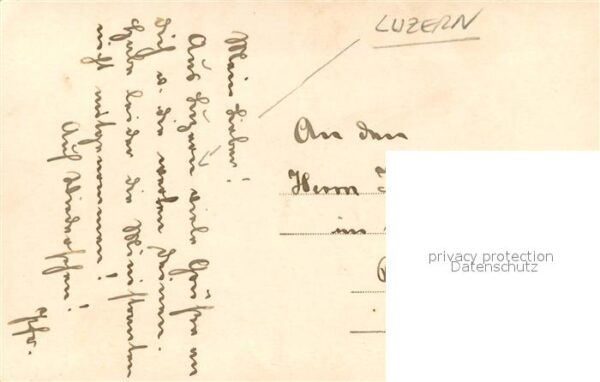 LUZERN
Mein Lieber!
Aus Luzern viele Grüße an
dich u. die werten deinen.
Habe leider die Ministranten
nicht mitgenommen!
Auf Wiedersehen!
An den
Herrn
in
privacy protection
Datenschutz